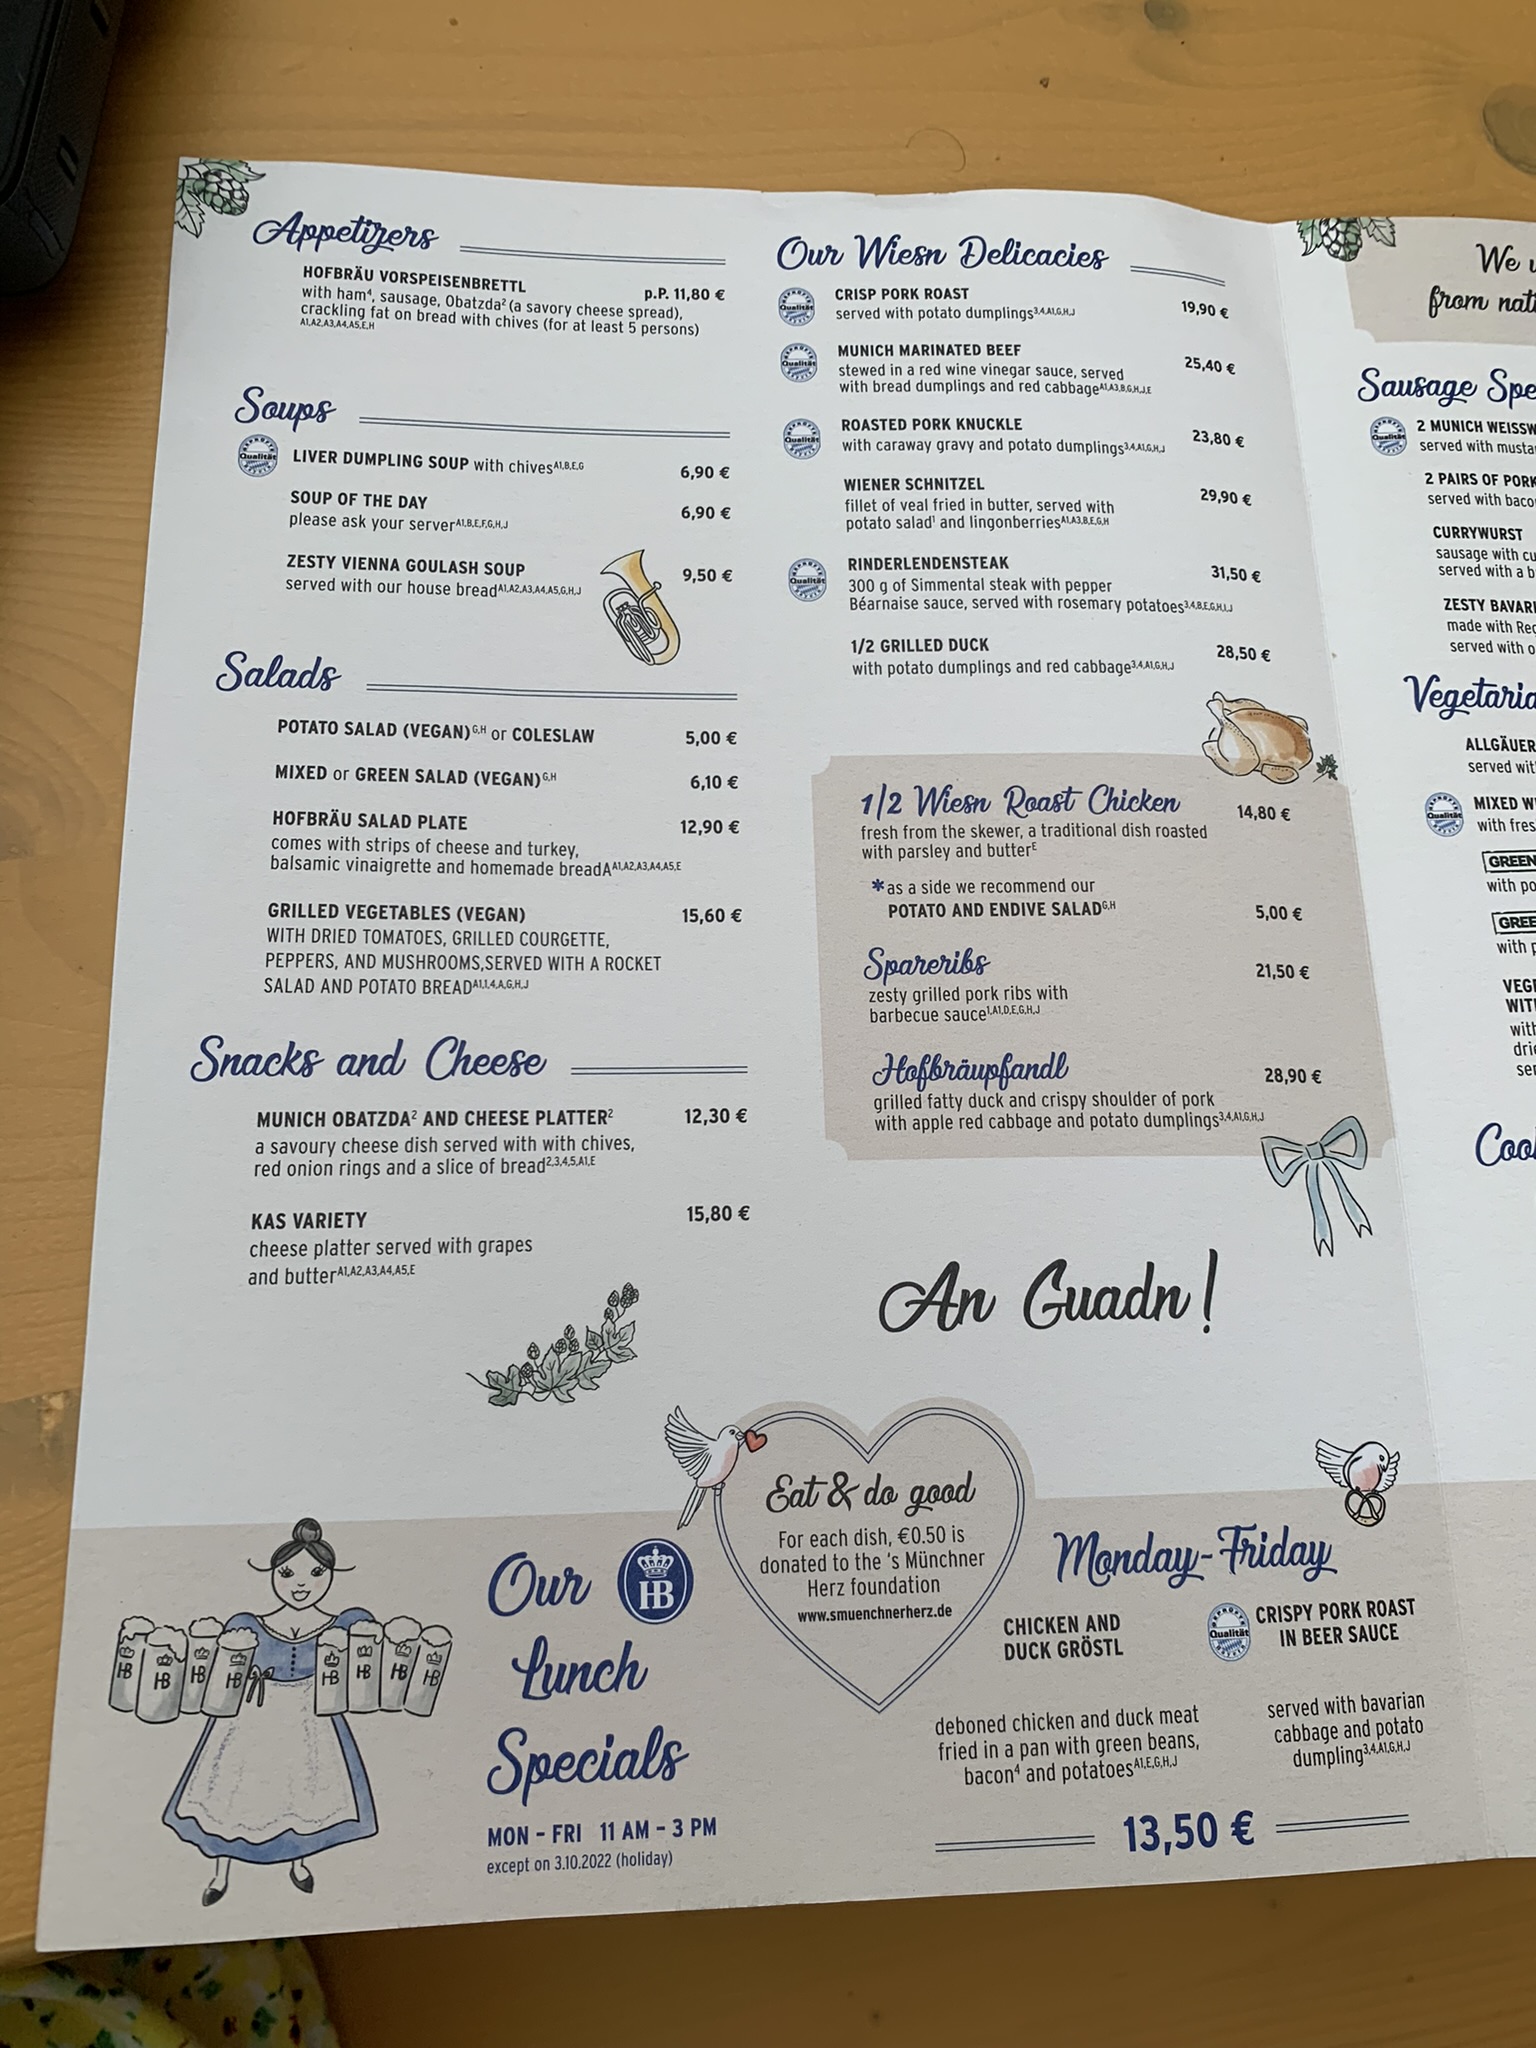 Appetizers
HOFBRÄU VORSPEISENBRETTL p.P. 11,80 €
with ham⁴, sausage, Obatzda² (a savory cheese spread),
crackling fat on bread with chives (for at least 5 persons)
A1,A2,A3,A4,A5,E,H
Soups
Qualität
LIVER DUMPLING SOUP with chives A1,B,E,G 6,90 €
SOUP OF THE DAY 6,90 €
please ask your server A1,B,E,F,G,H,J
ZESTY VIENNA GOULASH SOUP 9,50 €
served with our house bread A1,A2,A3,A4,A5,G,H,J
Salads
POTATO SALAD (VEGAN) G,H or COLESLAW 5,00 €
MIXED or GREEN SALAD (VEGAN) G,H 6,10 €
HOFBRÄU SALAD PLATE 12,90 €
comes with strips of cheese and turkey,
balsamic vinaigrette and homemade breadA A1,A2,A3,A4,A5,E
GRILLED VEGETABLES (VEGAN) 15,60 €
WITH DRIED TOMATOES, GRILLED COURGETTE,
PEPPERS, AND MUSHROOMS,SERVED WITH A ROCKET
SALAD AND POTATO BREAD A1,1,4,A,G,H,J
Snacks and Cheese
MUNICH OBATZDA² AND CHEESE PLATTER² 12,30 €
a savoury cheese dish served with with chives,
red onion rings and a slice of bread 2,3,4,5,A1,E
KAS VARIETY 15,80 €
cheese platter served with grapes
and butter A1,A2,A3,A4,A5,E
Our Wiesn Delicacies
Qualität
CRISP PORK ROAST 19,90 €
served with potato dumplings 3,4,A1,G,H,J
Qualität
MUNICH MARINATED BEEF 25,40 €
stewed in a red wine vinegar sauce, served
with bread dumplings and red cabbage A1,A3,B,G,H,J,E
Qualität
ROASTED PORK KNUCKLE 23,80 €
with caraway gravy and potato dumplings 3,4,A1,G,H,J
WIENER SCHNITZEL 29,90 €
fillet of veal fried in butter, served with
potato salad¹ and lingonberries A1,A3,B,E,G,H
Qualität
RINDERLENDENSTEAK 31,50 €
300 g of Simmental steak with pepper
Béarnaise sauce, served with rosemary potatoes 3,4,B,E,G,H,I,J
1/2 GRILLED DUCK 28,50 €
with potato dumplings and red cabbage 3,4,A1,G,H,J
1/2 Wiesn Roast Chicken 14,80 €
fresh from the skewer, a traditional dish roasted
with parsley and butter E
*as a side we recommend our
POTATO AND ENDIVE SALAD G,H 5,00 €
Spareribs 21,50 €
zesty grilled pork ribs with
barbecue sauce 1,A1,D,E,G,H,J
Hofbräupfandl 28,90 €
grilled fatty duck and crispy shoulder of pork
with apple red cabbage and potato dumplings 3,4,A1,G,H,J
An Guadn!
We
from nat
Sausage Spe
Qualität
2 MUNICH WEISSW
served with musta
2 PAIRS OF PORK
served with baco
CURRYWURST
sausage with cu
served with a b
ZESTY BAVARI
made with Re
served with o
Vegetaria
ALLGÄUER
served wit
Qualität
MIXED W
with fres
GREEN
with po
GREE
with p
VEGE
WITH
with
drie
ser
Coo
HB HB HB HB HB HB HB HB
Our HB
Lunch
Specials
MON - FRI 11 AM - 3 PM
except on 3.10.2022 (holiday)
Eat & do good
For each dish, €0.50 is
donated to the 's Münchner
Herz foundation
www.smuenchnerherz.de
Monday-Friday
CHICKEN AND
DUCK GRÖSTL
deboned chicken and duck meat
fried in a pan with green beans,
bacon⁴ and potatoes A1,E,G,H,J
Qualität
CRISPY PORK ROAST
IN BEER SAUCE
served with bavarian
cabbage and potato
dumpling 3,4,A1,G,H,J
13,50 €